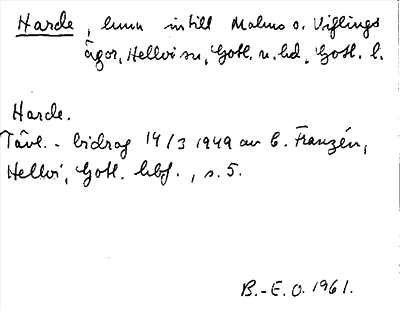 Harde, invid intill Malms o. Viflings
ägor, Hellvi sn, Gotl. n. hd, Gotl. l.
Harde.
Tävl.-bidrag 14/3 1949 av C. Franzén,
Hellvi, Gotl. hbf., s. 5.
B.-E. O. 1961.